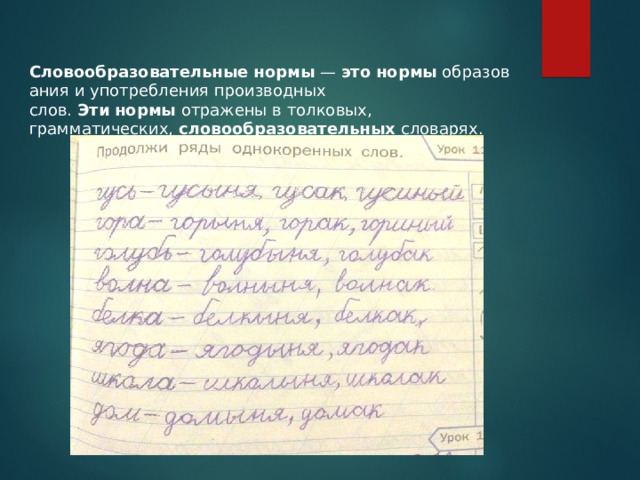 Словообразовательные нормы — это нормы образов
ания и употребления производных
слов. Эти нормы отражены в толковых,
грамматических, словообразовательных словарях.
Продолжи ряды однокоренных слов.
Урок 11
гусь – гусыня, гусак, гусиный
гора – горыня, горак, гориный
голубь – голубыня, голубак
волна – волныня, волнак
белка – белкыня, белкак,
ягода – ягодыня, ягодак
школа – школыня, школак
дом – домыня, домак
Урок 1